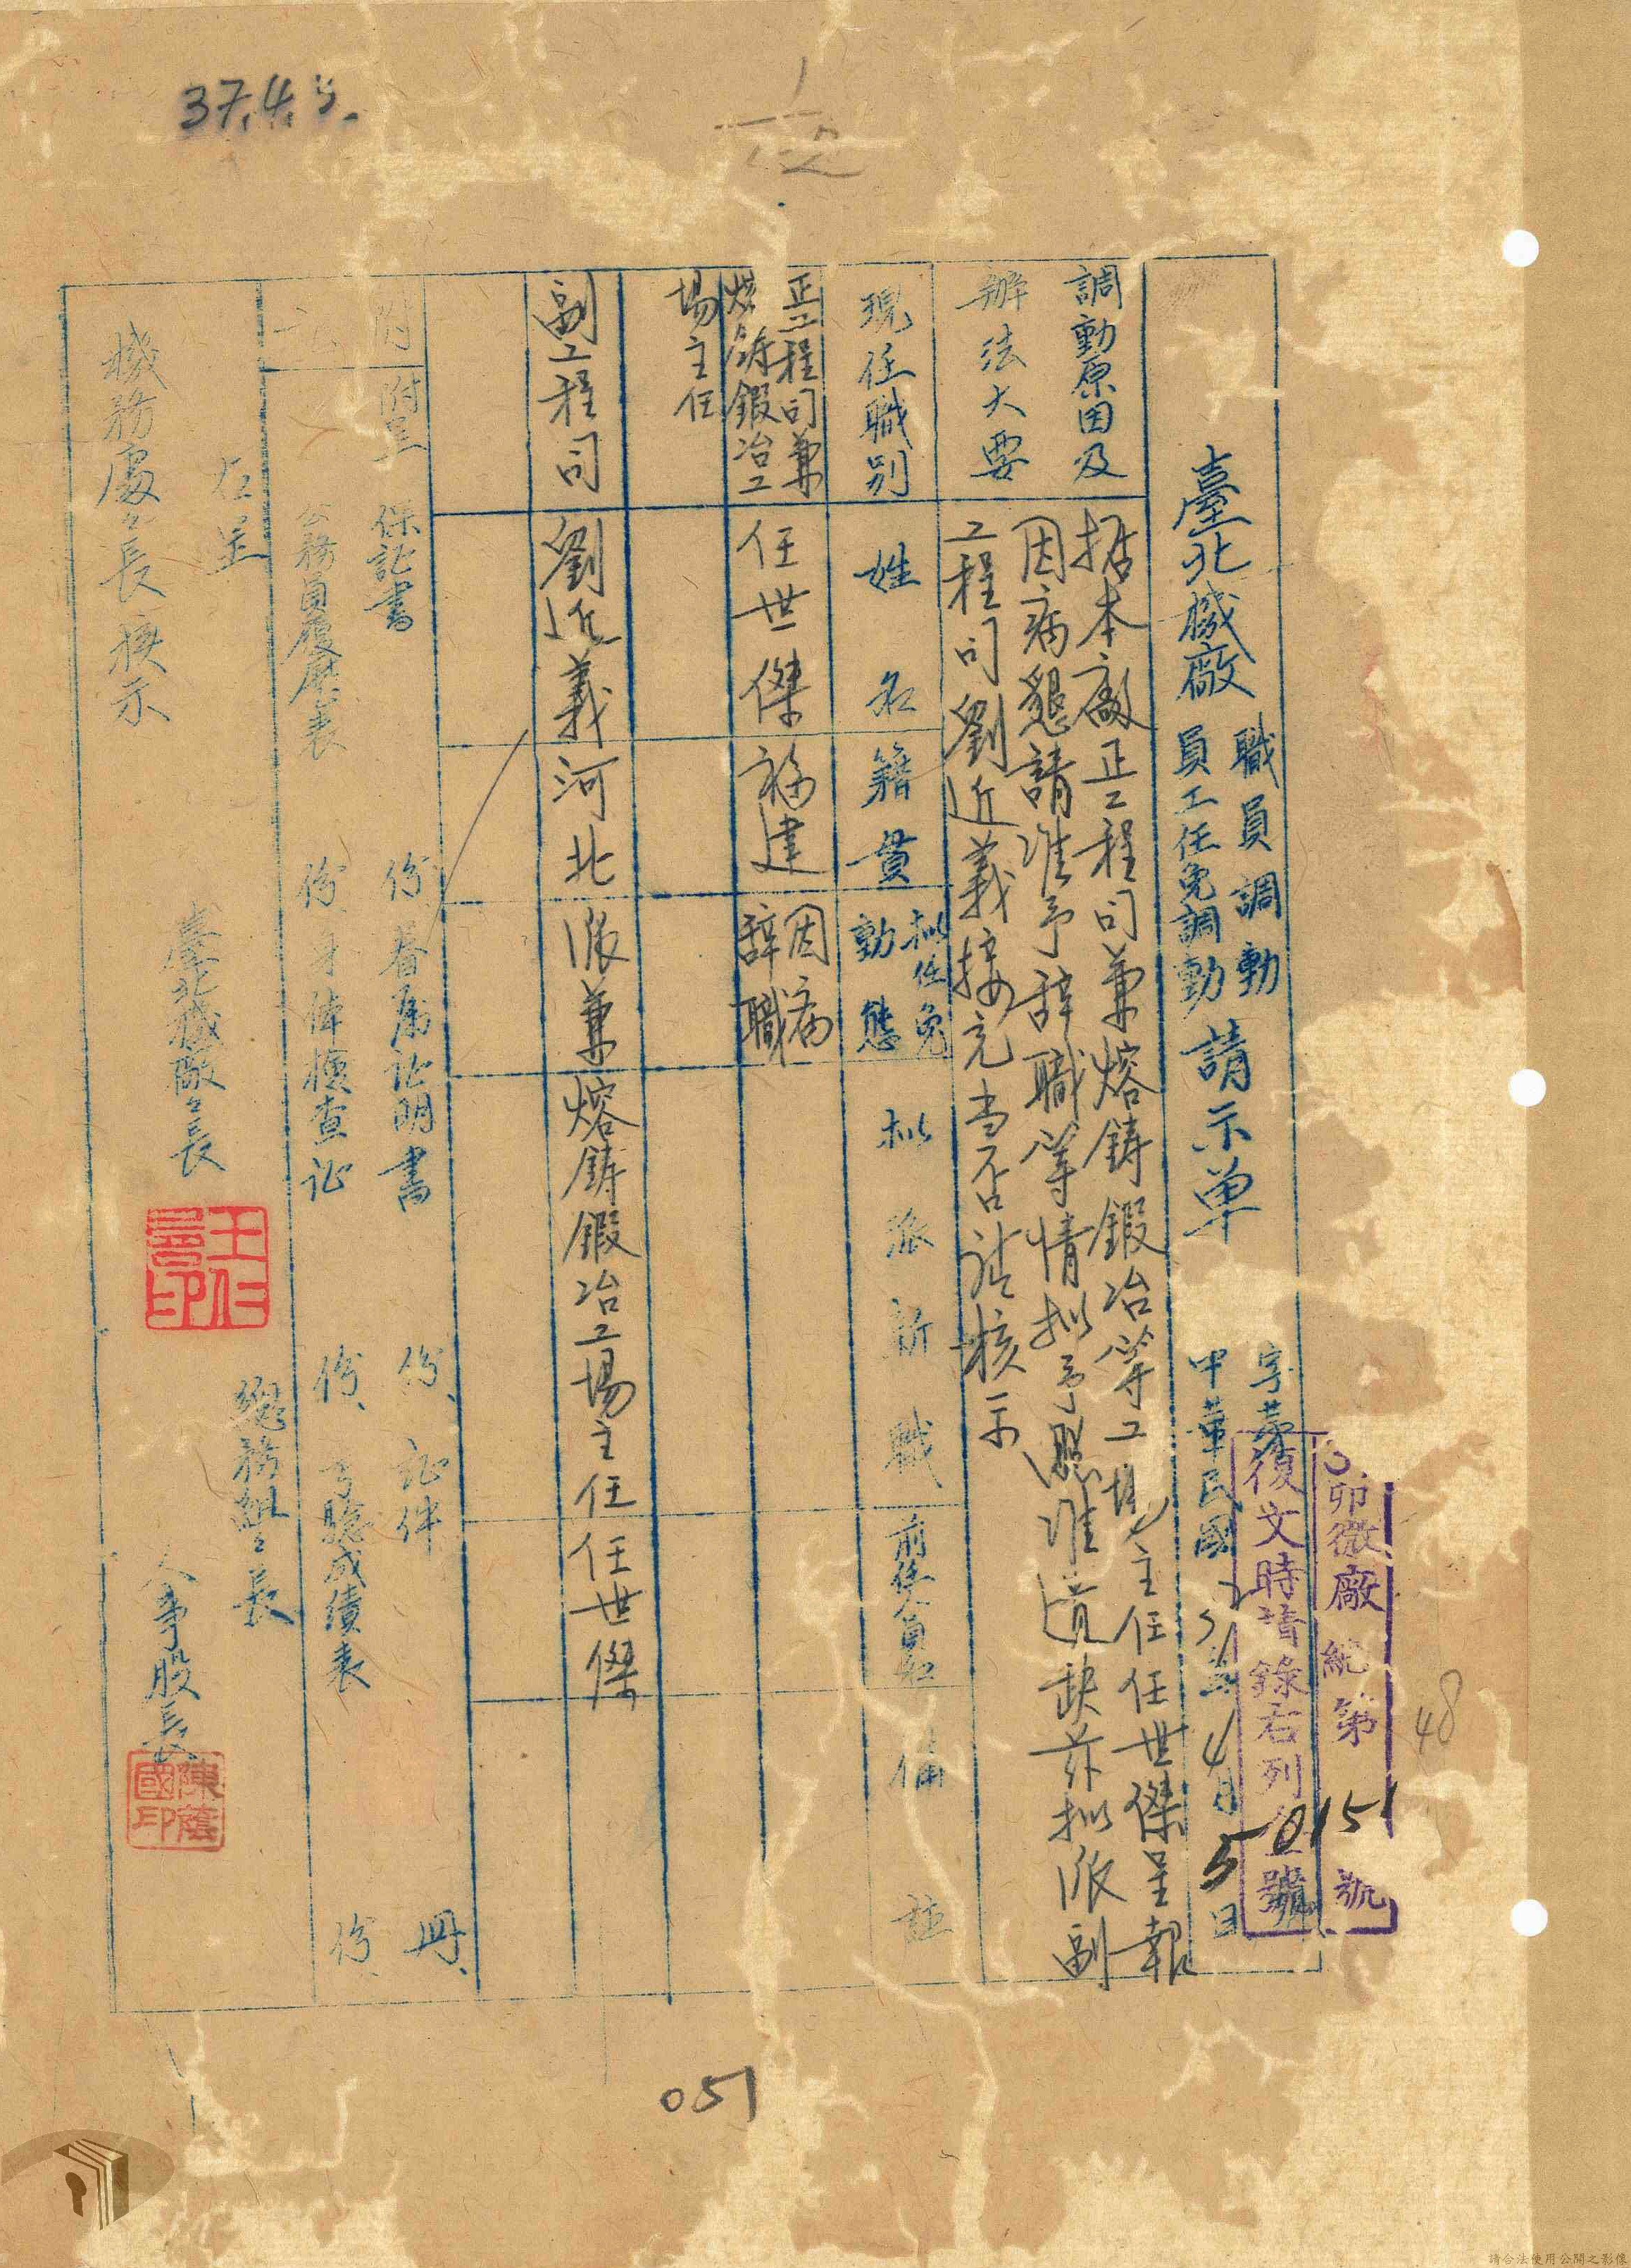 37.4.5.
48
37卯微廠總第0151號
復文時請錄右列全號
臺北機廠職員調動
員工任免調動請示單
字第 號
中華民國37年4月5日
調動原因及
辦法大要
據本廠正工程司兼熔鑄鍛冶等工場主任任世傑呈報
因病懇請准予辞職等情拟予照准遺缺茲拟派副
工程司劉近義接充当否請核示
現任職別
姓名
籍貫
拟任免
動態
拟派新職
前任人員姓名
備註
正工程司兼
熔鑄鍛冶工
場主任
任世傑
福建
因病
辞職
副工程司
劉近義
河北
派兼
熔鑄鍛冶工場主任
任世傑
附
附呈
保証書 份、眷屬証明書 份、証件 冊、
公務員履歷表 份、身体檢查証 份、考驗成績表 份、
右呈
機務處處長核示
臺北機廠廠長
王仁曾印
總務組組長
人事股股長
陳蔭國印
051
請合法使用公開之影像